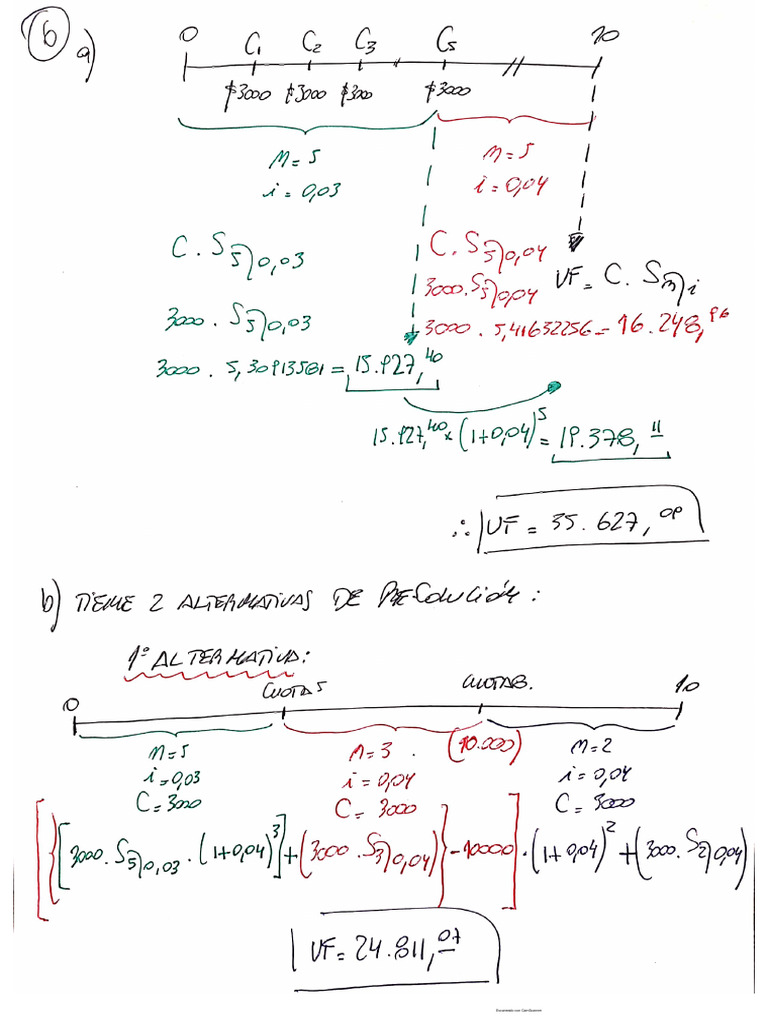 6
a)
0 C1 C2 C3 C5 10
$3000 $3000 $3000 $3000
n=5 n=5
i=0,03 i=0,04
C.S5⌉0,03 C.S5⌉0,04
3000.S5⌉0,04 VF=C.Sn⌉i
3000.S5⌉0,03 3000.5,41632256=16.248,96
3000.5,30913581=15.927,40
15.927,40×(1+0,04)^5=19.378,11
∴ VF=35.627,09
b) TIENE 2 ALTERNATIVAS DE RESOLUCIÓN:
1° ALTERNATIVA:
0 CUOTA5 CUOTA8. 10
n=5 n=3. (10.000) n=2
i=0,03 i=0,04 i=0,04
C=3000 C=3000 C=3000
[{[3000.S5⌉0,03.(1+0,04)^3]+(3000.S3⌉0,04)}-10000].(1+0,04)^2+(3000.S2⌉0,04)
VF=24.811,07
Escaneado con CamScanner